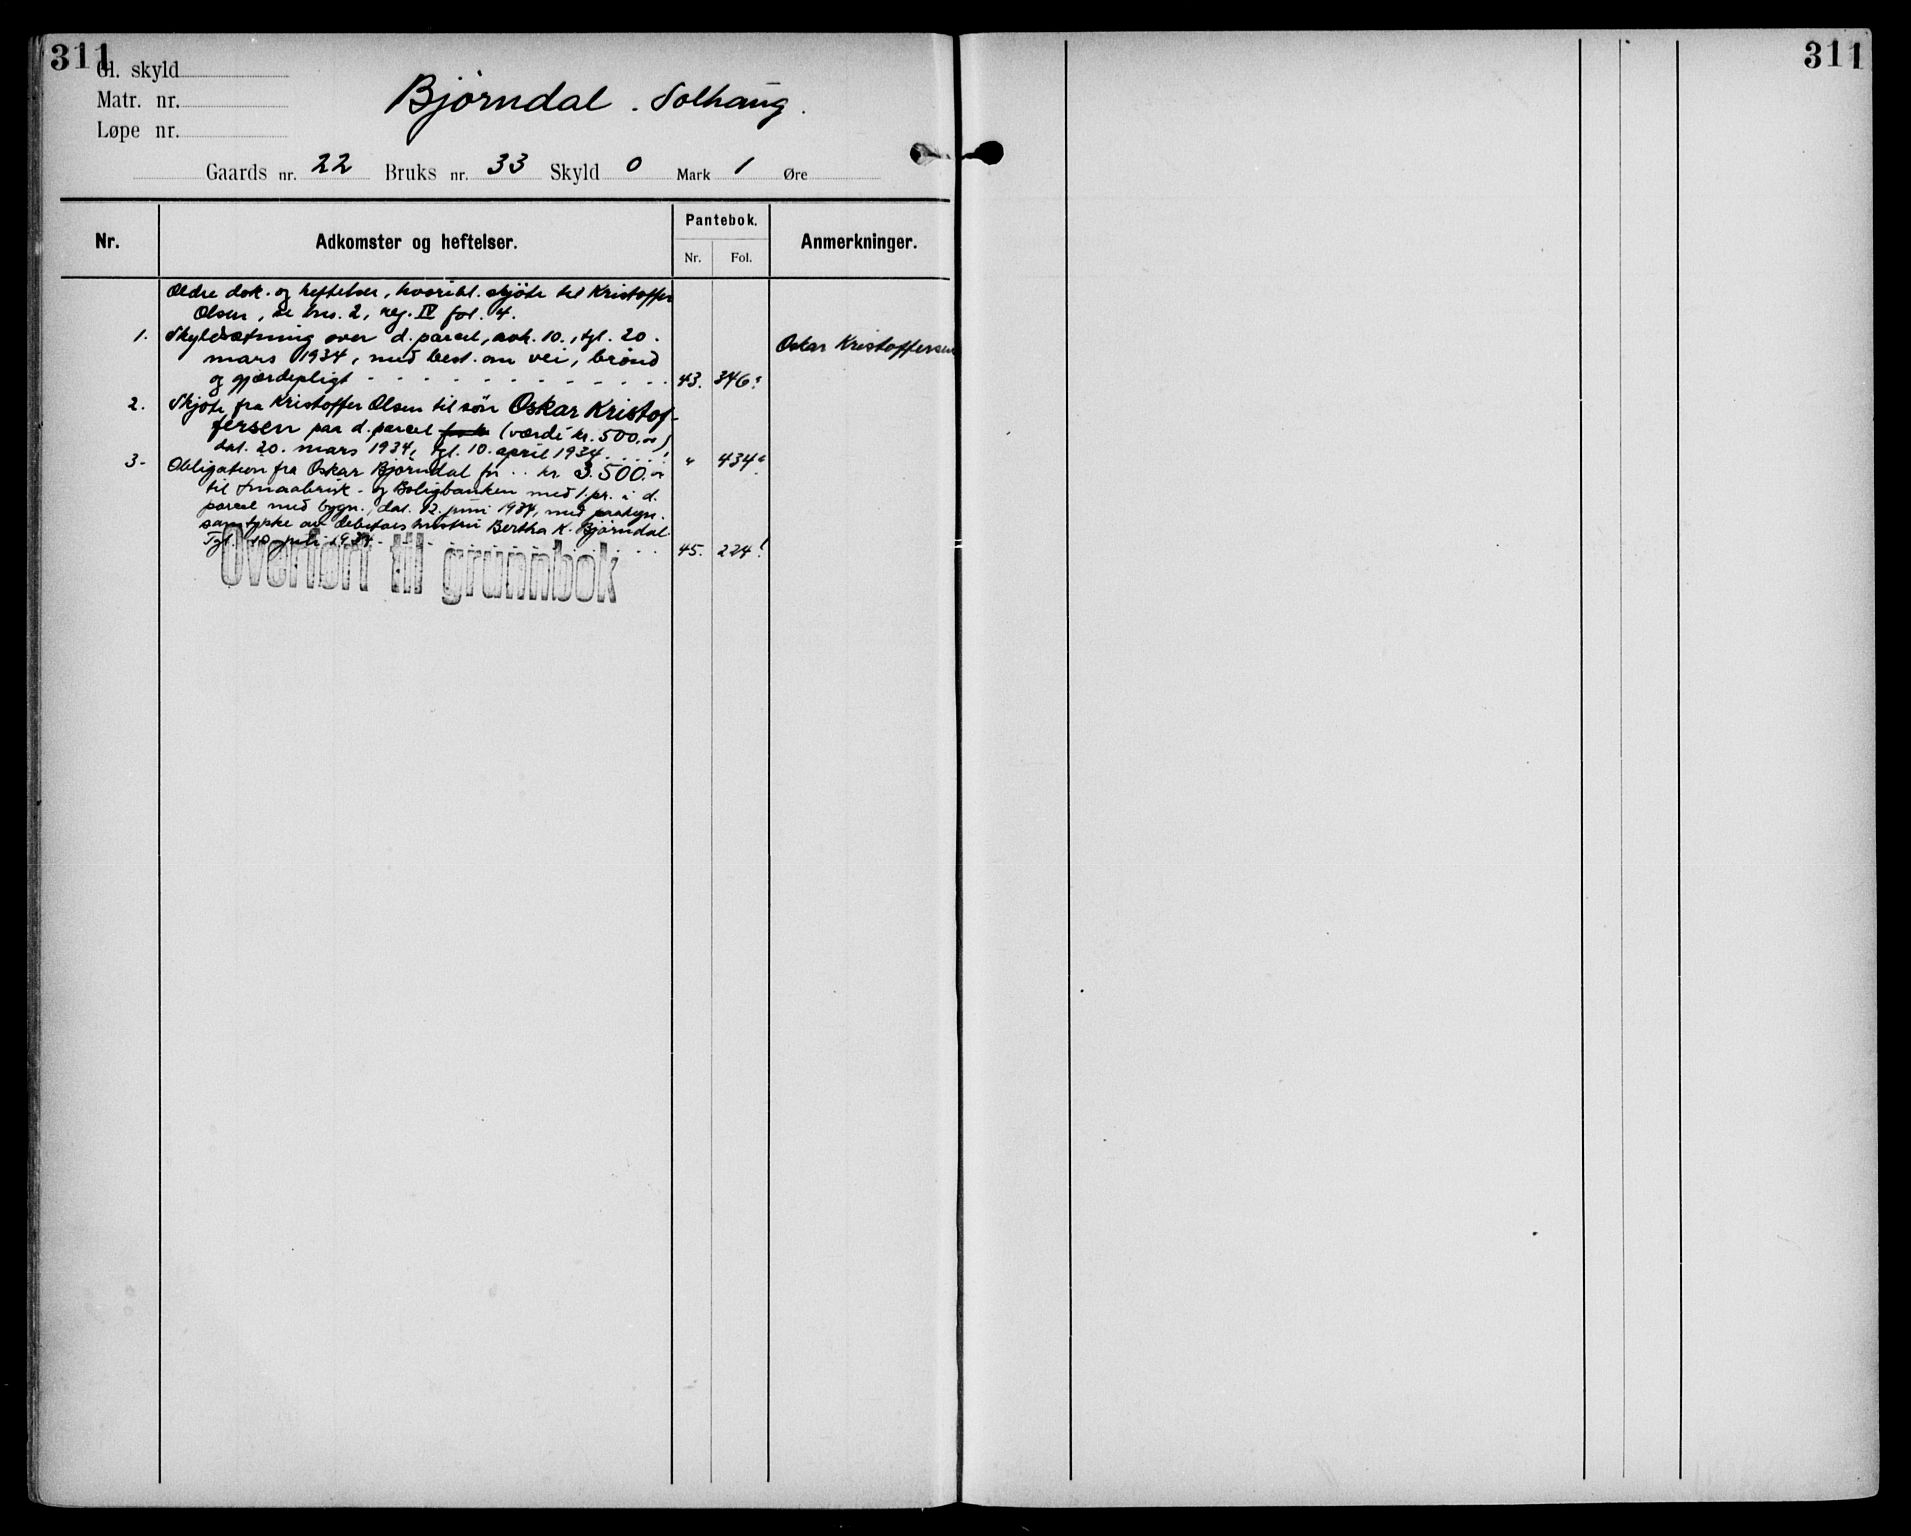 311
311
Gl. skyld
Matr. nr.
Løpe nr.
Bjørndal. Solhaug.
Gaards nr. 22 Bruks nr. 33 Skyld 0 Mark 1 Øre
Nr. Adkomster og heftelser. Pantebok. Anmerkninger.
Nr. Fol.
Ældre dok. og heftelser, hvoribl. skjøte til Kristoffer
Olsen, se bns. 2, reg. IV fol. 4.
1. Skyldsætning over d. parcel, avh. 10., tgl. 20.
mars 1934, med best. om vei, brønd Oskar Kristoffersen
og gjærdepligt 43. 346
2. Skjøte fra Kristoffer Olsen til søn Oskar Kristof-
fersen paa d. parcel (værdi kr. 500,00)
dat. 20. mars 1934, tgl. 10. april 1934 " 434
3. Obligation fra Oskar Bjørndal for .. kr. 3.500.00
til Smaabruk- og Boligbanken med 1. pr. i d.
parcel med bygn., dat. 12. juni 1934, med paategn.
samtykke av debitors hustru Bertha K. Bjørndal.
Tgl. 10. juli 1934 45. 224
Overført til grunnbok